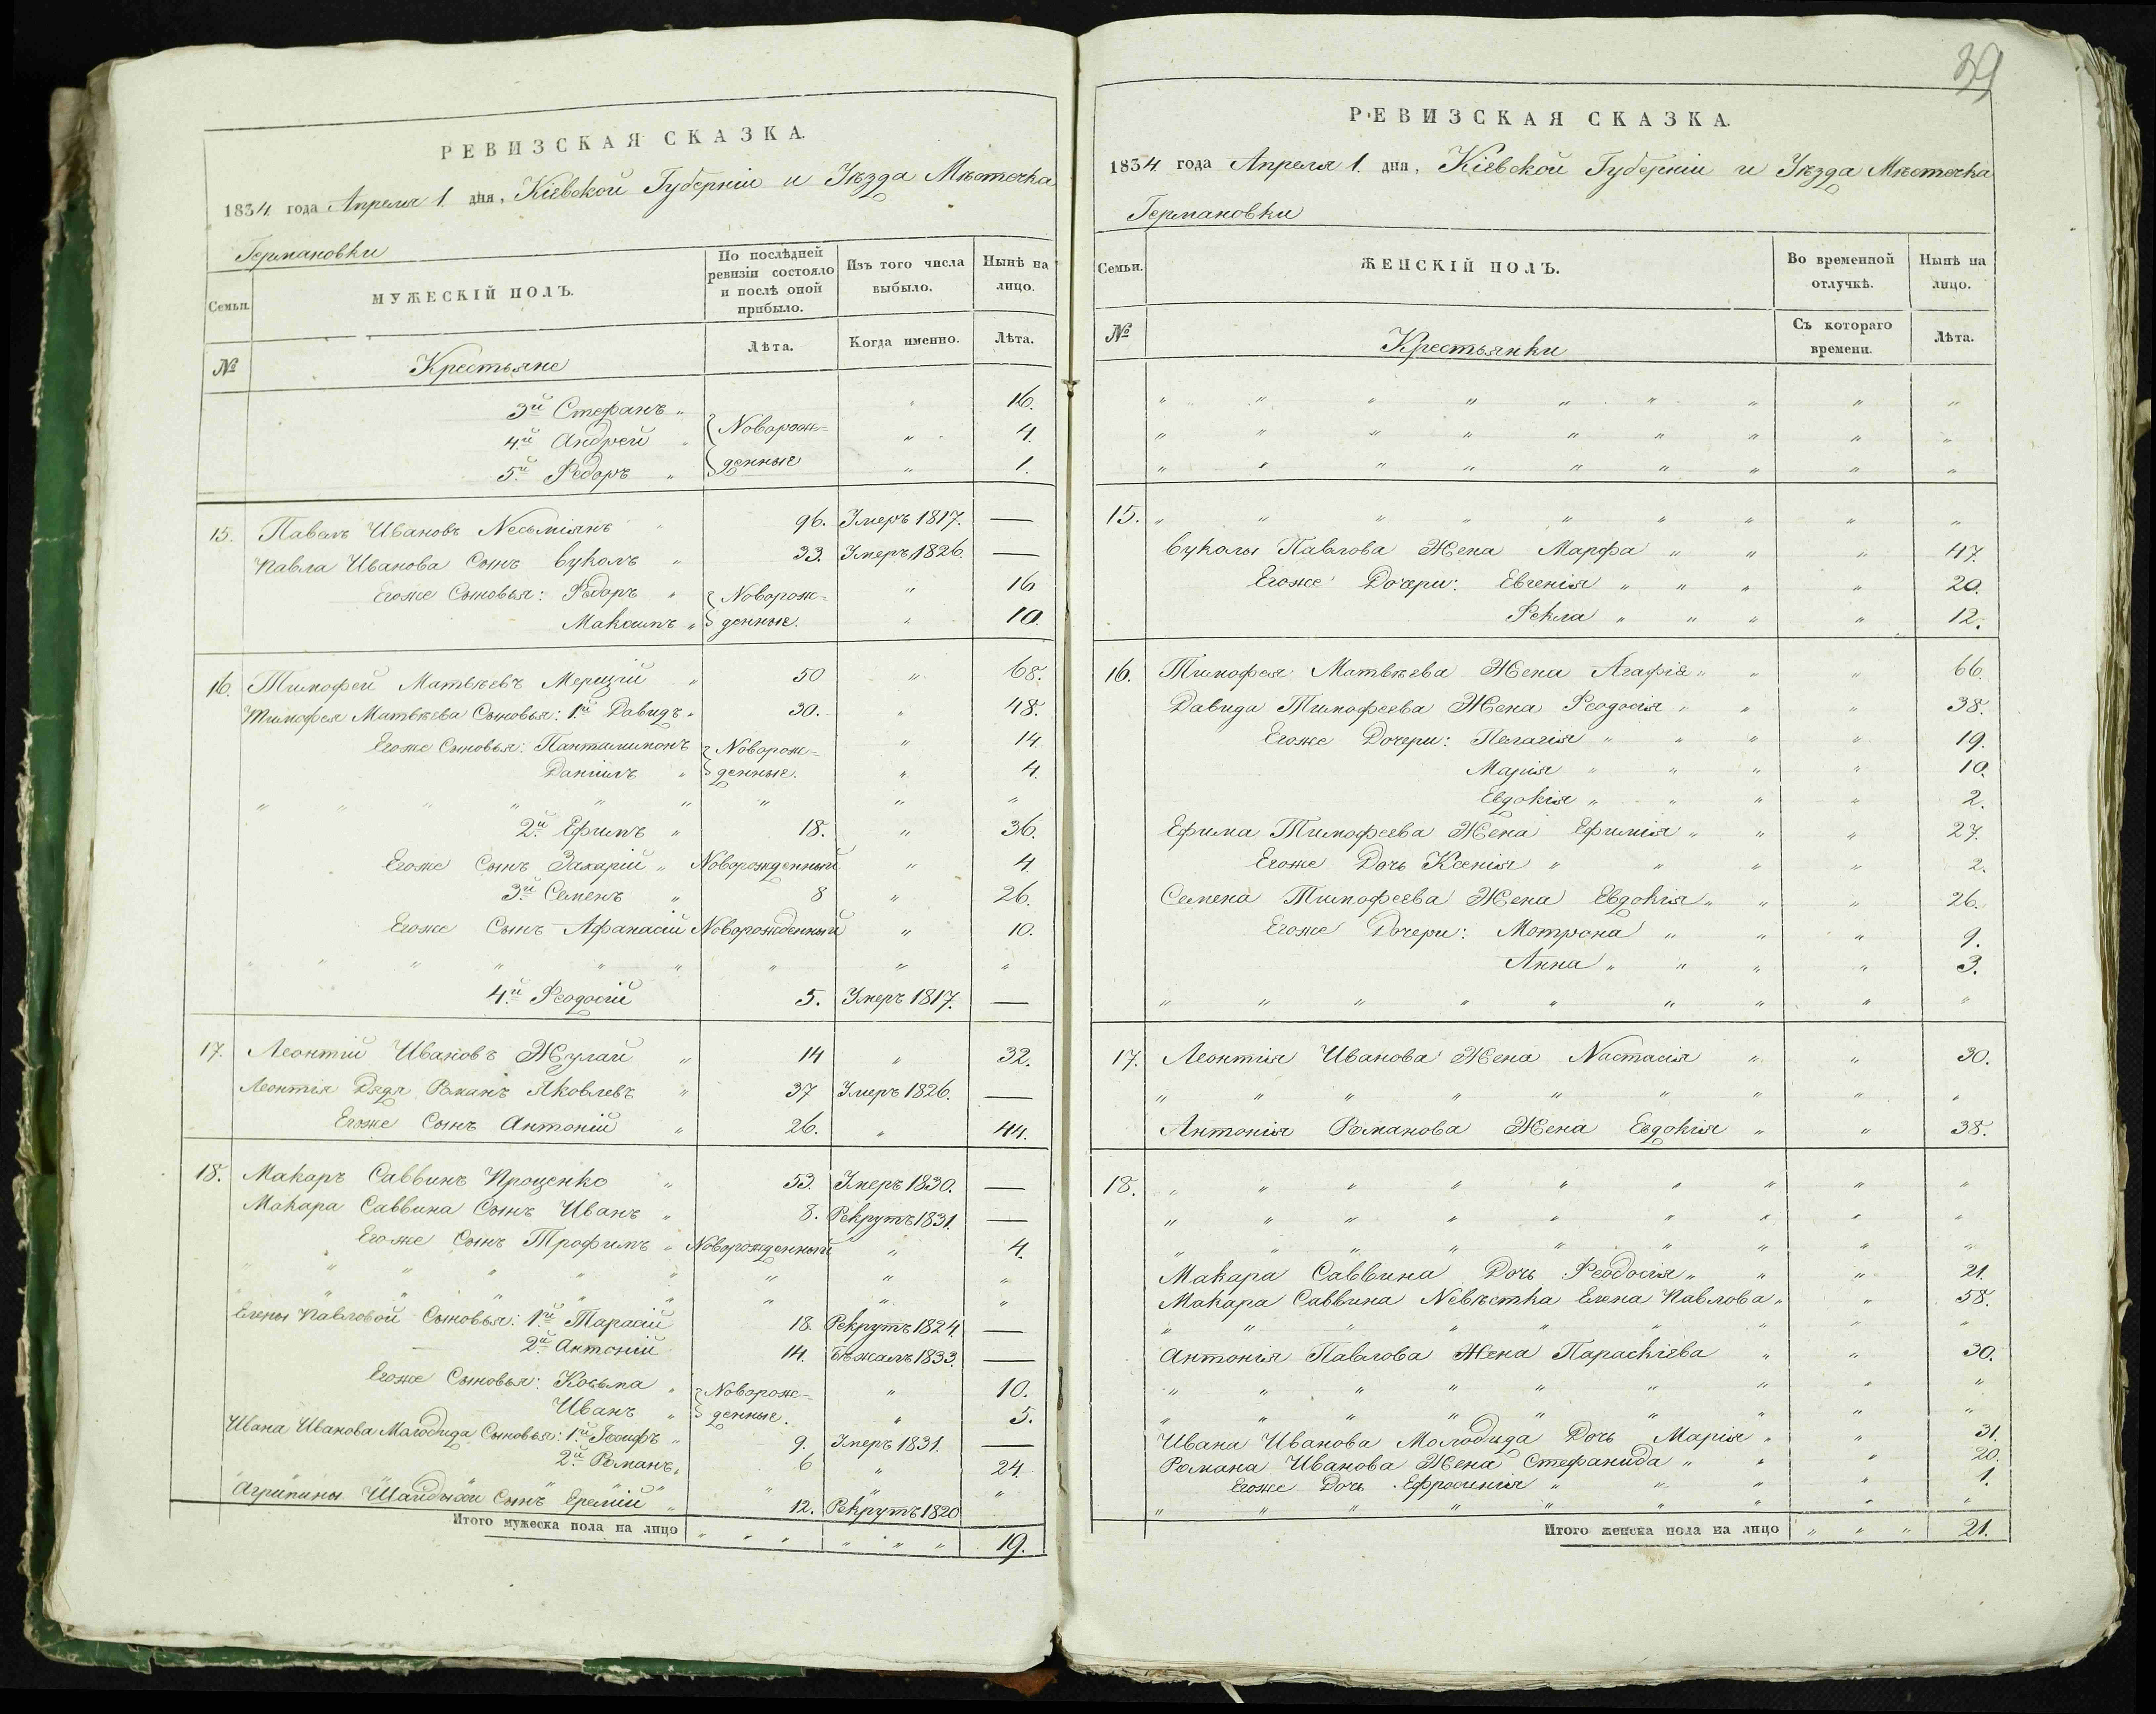 39
РЕВИЗСКАЯ СКАЗКА.
1834. года Апреля 1. дня, Кіевской Губерніи и Уѣзда Мѣстечка
Германовки
Семьи.
МУЖЕСКІЙ ПОЛЪ.
По послѣдней ревизіи состояло и послѣ оной прибыло.
Изъ того числа выбыло.
Нынѣ на лицо.
№
Крестьяне
Лѣта.
Когда именно.
Лѣта.
3й Стефанъ „ „ 16.
4й Андрей „ Новорож= „ 4.
5й Федоръ „ денные „ 1.
15. Павелъ Ивановъ „ 96. Умеръ 1817. —
Павла Иванова Сынъ Вуколъ „ 33. Умеръ 1826. —
Егоже Сыновья: Федоръ „ Новорож= „ 16
Максимъ „ денные. „ 10.
16. Тимофей Матвѣевъ „ 50 „ 68.
Тимофея Матвѣева Сыновья: 1й Давидъ „ 30. „ 48.
Егоже Сыновья: Панталимонъ Новорож= „ 14
Даніилъ „ денные. „ 4.
„ „ „ „ „ „ „ „ „
2й Ефимъ „ 18. „ 36.
Егоже Сынъ Захарій „ Новорожденный „ 4.
3й Семенъ „ 8 „ 26.
Егоже Сынъ Афанасій Новорожденный „ 10.
„ „ „ „ „ „ „ „ „
4й Феодосій 5. Умеръ 1817. —
17. Леонтій Ивановъ Жулай „ 14 „ 32.
Леонтія Дядя Романъ Яковлевъ „ 37 Умеръ 1826. —
Егоже Сынъ Антоній „ 26. „ 44.
18. Макаръ Саввинъ Проценко „ 53. Умеръ 1830. —
Макара Саввина Сынъ Иванъ „ 8. Рекрутъ 1831. —
Егоже Сынъ Трофимъ „ Новорожденный „ 4.
„ „ „ „ „ „ „ „ „
„ „ „ „ „ „ „ „ „
Елены Павловой Сыновья: 1й Тарасій 18. Рекрутъ 1824. —
2й Антоній 14. Бѣжалъ 1833. —
Егоже Сыновья: Косьма „ Новорож= „ 10.
Иванъ „ денные. „ 5.
Ивана Иванова Молодида Сыновья: 1й Іосифъ „ 9. Умеръ 1831. —
2й Романъ „ 6 „ 24.
„ „ „ „ „ „ „ „ „
Агрипины Сынъ Еремій „ 12. Рекрутъ 1820
Итого мужеска пола на лицо „ „ „ „ „ „ 19.
РЕВИЗСКАЯ СКАЗКА.
1834. года Апреля 1. дня, Кіевской Губерніи и Уѣзда Мѣстечка
Германовки
Семьи.
ЖЕНСКІЙ ПОЛЪ.
Во временной отлучкѣ.
Нынѣ на лицо.
№
Крестьянки
Съ котораго времени.
Лѣта.
„ „ „ „ „ „ „ „ „
„ „ „ „ „ „ „ „ „
„ „ „ „ „ „ „ „ „
15. „ „ „ „ „ „ „ „ „
Вуколы Павлова Жена Марфа „ „ „ 47.
Егоже Дочери: Евгенія „ „ „ „ 20.
Фекла „ „ „ „ 12.
16. Тимофея Матвѣева Жена Агафія „ „ „ 66.
Давида Тимофеева Жена Феодосія „ „ „ 38.
Егоже Дочери: Пелагія „ „ „ „ 19.
Марія „ „ „ „ 10.
Евдокія „ „ „ „ 2.
Ефима Тимофеева Жена Ефимія „ „ „ 27.
Егоже Дочь Ксенія „ „ „ „ 2.
Семена Тимофеева Жена Евдокія „ „ „ 26.
Егоже Дочери: Мотрона „ „ „ 9.
Анна „ „ „ „ 3.
„ „ „ „ „ „ „ „ „
17. Леонтія Иванова Жена Настасія „ „ 30.
„ „ „ „ „ „ „ „ „
Антонія Романова Жена Евдокія „ „ 38.
18. „ „ „ „ „ „ „ „ „
„ „ „ „ „ „ „ „ „
„ „ „ „ „ „ „ „ „
Макара Саввина Дочь Феодосія „ „ „ 21.
Макара Саввина Невѣстка Елена Павлова „ „ 58.
„ „ „ „ „ „ „ „ „
Антонія Павлова Жена Параскіева „ „ 30.
„ „ „ „ „ „ „ „ „
„ „ „ „ „ „ „ „ „
Ивана Иванова Молодида Дочь Марія „ „ 31.
Романа Иванова Жена Стефанида „ „ „ 20.
Егоже Дочь Ефросинія „ „ „ „ 1.
„ „ „ „ „ „ „ „ „
Итого женска пола на лицо „ „ „ 21.